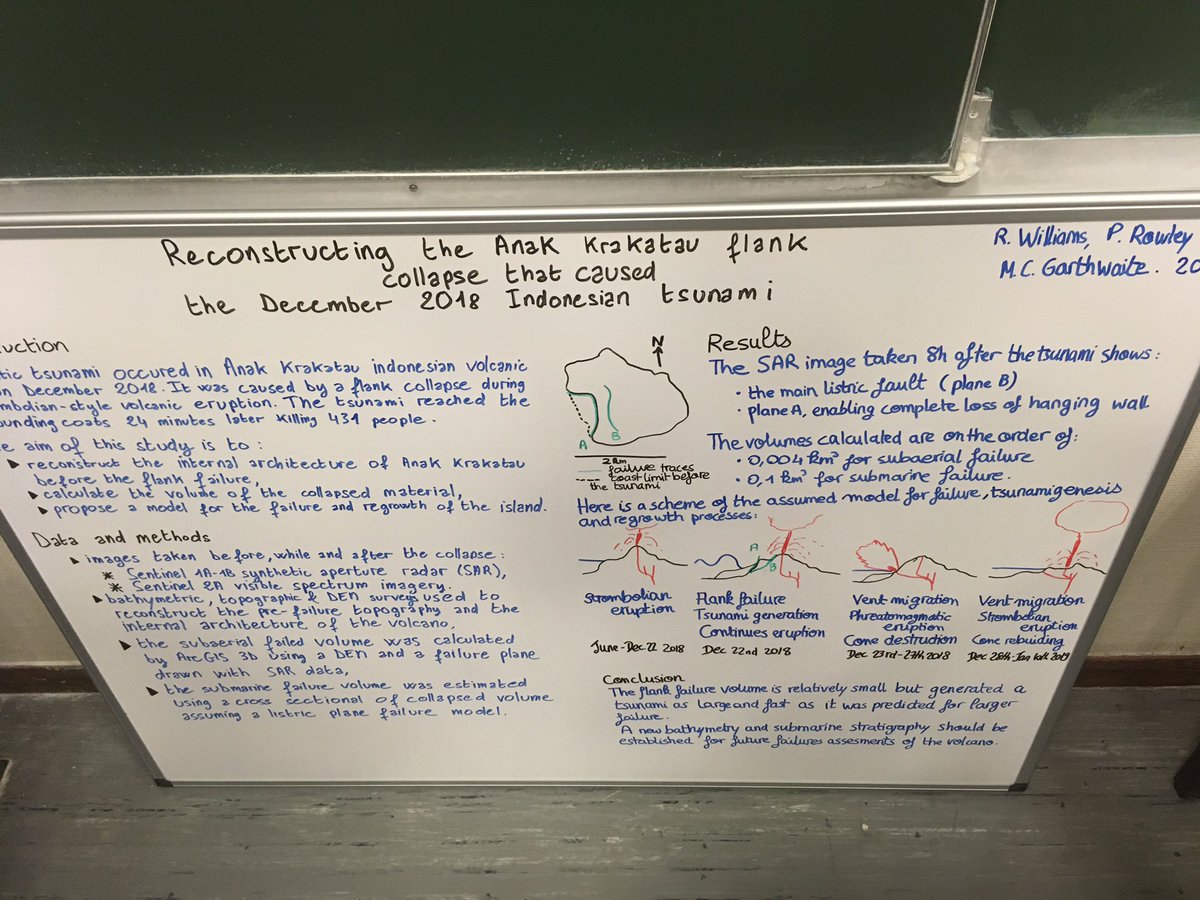 Reconstructing the Anak Krakatau flank
collapse that caused
the December 2018 Indonesian tsunami
R. Williams, P. Rowley
M.C. Garthwaite. 20
uction
tic tsunami occured in Anak Krakatau indonesian volcanic
n December 2018. It was caused by a flank collapse during
mbolian-style volcanic eruption. The tsunami reached the
ounding coats 24 minutes later killing 431 people.
e aim of this study is to :
reconstruct the internal architecture of Anak Krakatau
before the flank failure,
calculate the volume of the collapsed material,
propose a model for the failure and regrowth of the island.
Data and methods
images taken before, while and after the collapse :
* Sentinel 1A-1B synthetic aperture radar (SAR),
* Sentinel 2A visible spectrum imagery.
bathymetric, topographic & DEM surveys used to
reconstruct the pre-failure topography and the
internal architecture of the volcano,
the subaerial failed volume was calculated
by ArcGIS 3D using a DEM and a failure plane
drawn with SAR data,
the submarine failure volume was estimated
using a cross sectional of collapsed volume
assuming a listric plane failure model.
N
A
B
2 km
failure traces
coast limit before
the tsunami
Results
The SAR image taken 8h after the tsunami shows :
• the main listric fault (plane B)
• plane A, enabling complete loss of hanging wall
The volumes calculated are on the order of :
• 0,004 km³ for subaerial failure
• 0,1 km³ for submarine failure.
Here is a scheme of the assumed model for failure, tsunamigenesis
and regrowth processes :
A
B
Strombolian
eruption
June-Dec 22 2018
Flank failure
Tsunami generation
Continues eruption
Dec 22nd 2018
Vent migration
Phreatomagmatic
eruption
Cone destruction
Dec 23rd-27th 2018
Vent migration
Strombolian
eruption
Cone rebuiding
Dec 28th-Jan 2019
Conclusion
The flank failure volume is relatively small but generated a
tsunami as large and fast as it was predicted for larger
failure.
A new bathymetry and submarine stratigraphy should be
established for future failures assesments of the volcano.